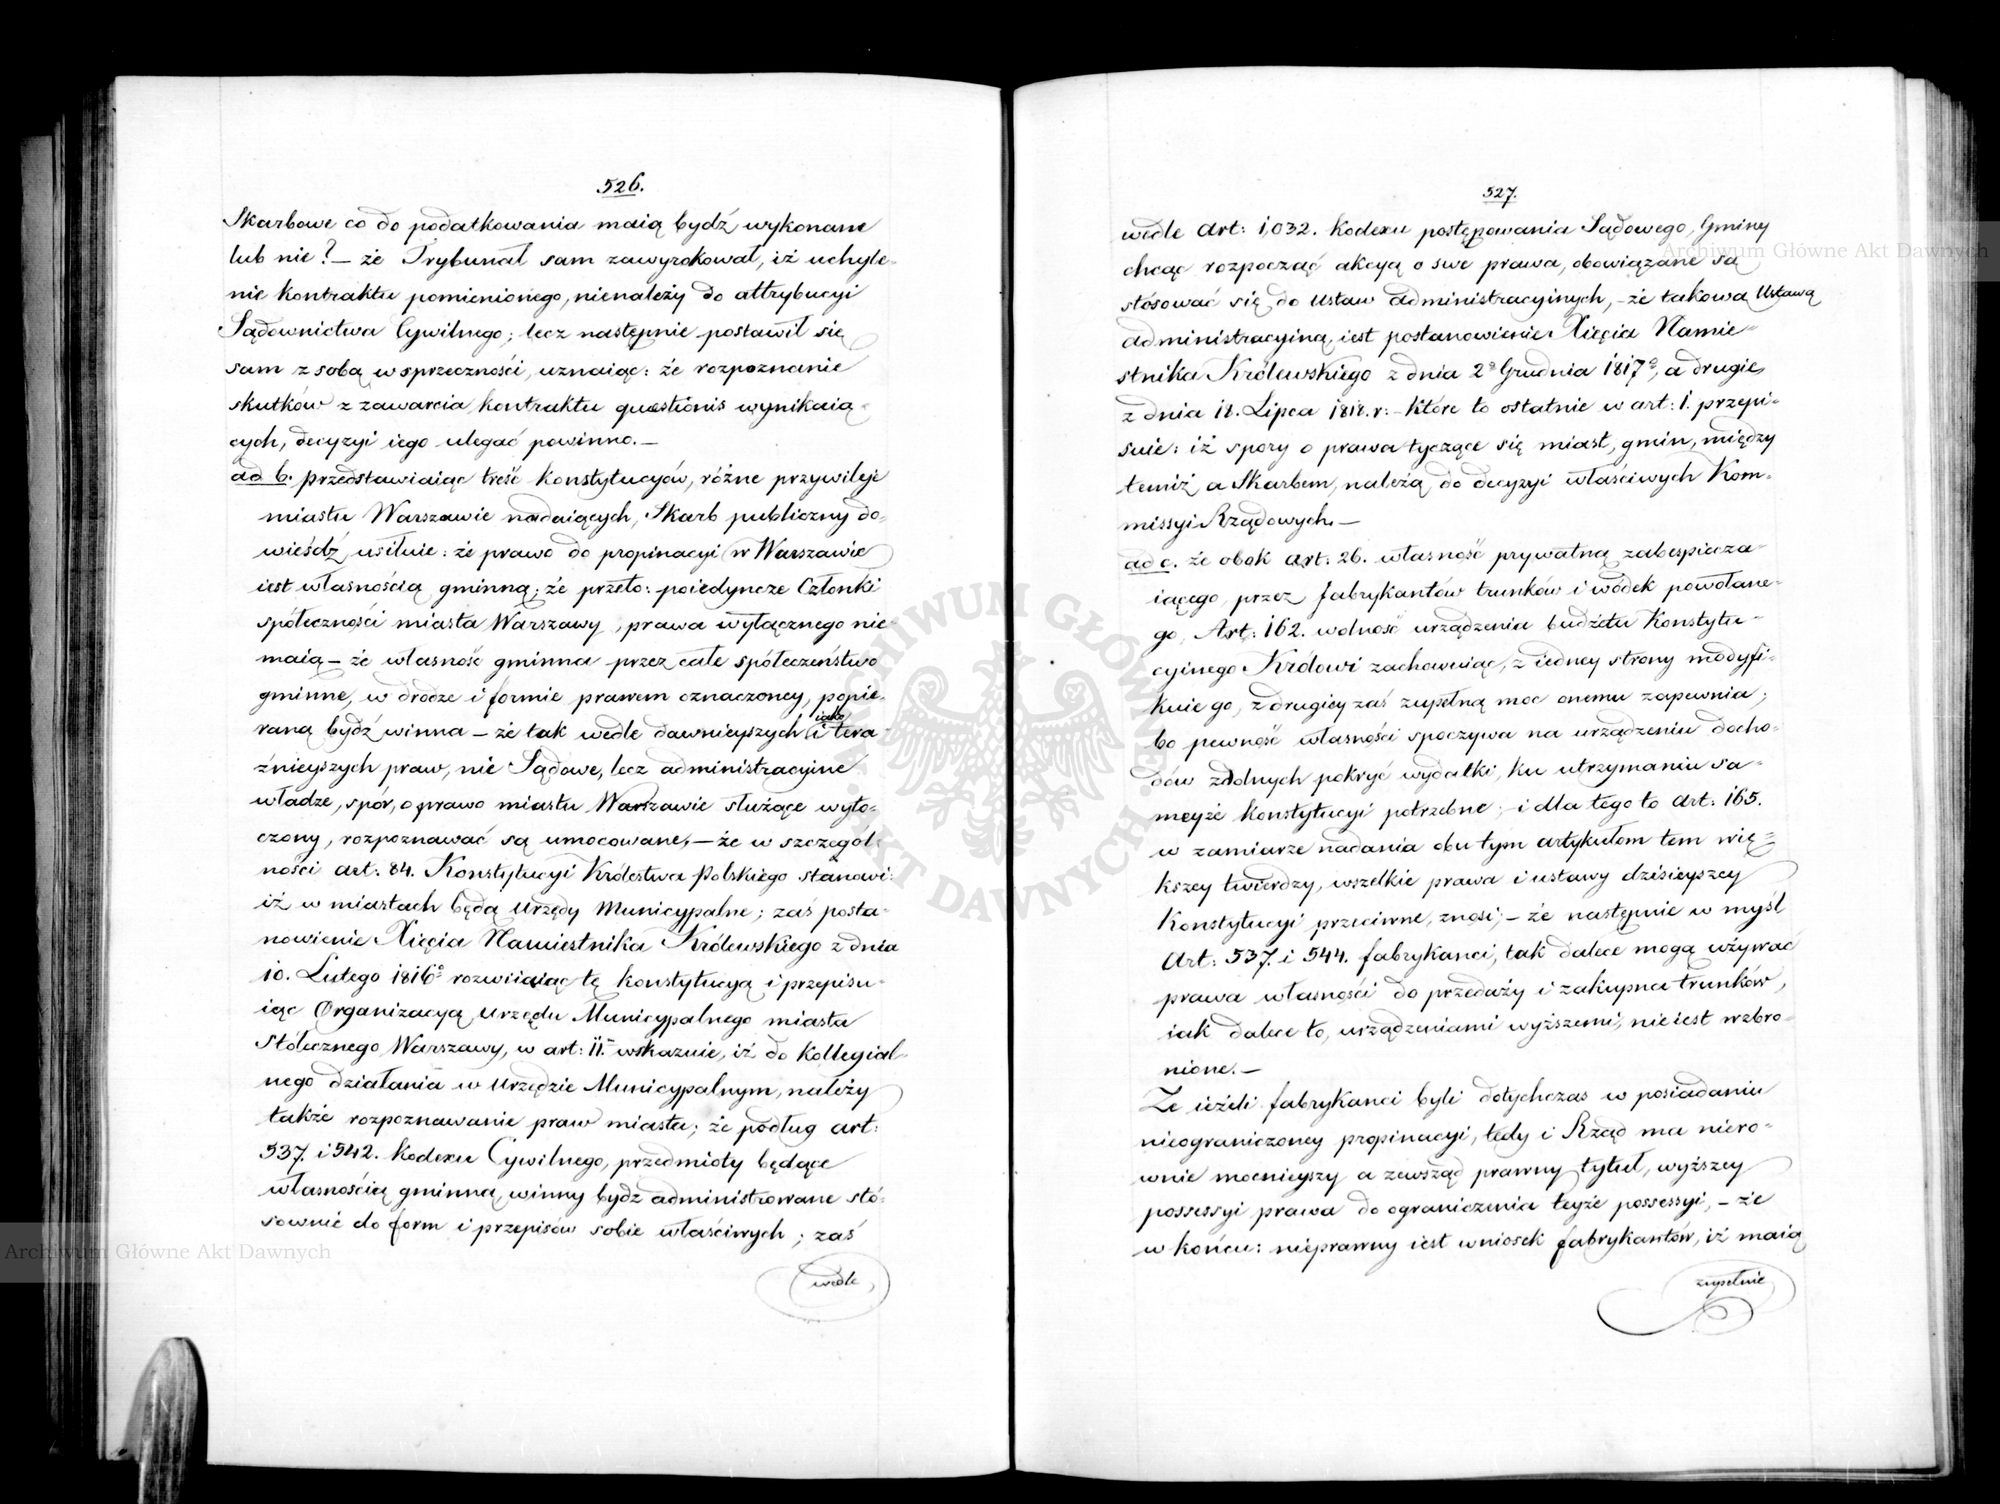 526.
Skarbowe co do podatkowania maią bydź wykonane
lub nie? — że Trybunał sam zawyrokował, iż uchyle-
nie kontraktu pomienionego, nienależy do attrybucyi
Sądownictwa Cywilnego; lecz następnie postawił się
sam z sobą w sprzeczności, uznaiąc: że rozpoznanie
skutków z zawarcia kontraktu quaestionis wynikaią-
cych, decyzyi iego ulegać powinno. —
ad b. przedstawiaiąc treść konstytucyów, różne przywileje
miastu Warszawie nadaiących, Skarb publiczny do-
wieśdź usiłuie: że prawo do propinacyi w Warszawie
iest własnością gminną; że przeto: poiedyncze Członki
spółeczności miasta Warszawy, prawa wyłącznego nie
maią — że własność gminna przez całe spółeczeństwo
gminne, w drodze i formie prawem oznaczoney, popie-
raną bydź winna — że tak wedle dawnieyszych iako i tera-
źnieyszych praw, nie Sądowe, lecz administracyine
władze, spór, o prawo miastu Warszawie służące wyto-
czony, rozpoznawać są umocowane, — że w szczegól-
ności art: 84. Konstytucyi Królestwa Polskiego stanowi:
iż w miastach będą Urzędy Municypalne; zaś posta-
nowienie Xięcia Namiestnika Królewskiego z dnia
10. Lutego 1816o rozwiiaiąc tę konstytucyą i przepisu-
iąc Organizacyą Urzędu Municypalnego miasta
Stołecznego Warszawy, w art: 11. wskazuie, iż do kollegial-
nego działania w Urzędzie Municypalnym, należy
także rozpoznawanie praw miasta; że podług art:
537. i 542. Kodexu Cywilnego, przedmioty będące
własnością gminną, winny bydź administrowane stó-
sownie do form i przepisów sobie właściwych; zaś
wedle
527.
wedle Art: 1,032. Kodexu postępowania Sądowego, Gminy
chcąc rozpocząć akcyą o swe prawa, obowiązane są
stósować się do Ustaw administracyinych, — że takową Ustawą
administracyiną, iest postanowienie Xięcia Namie-
stnika Królewskiego z dnia 2o Grudnia 1817o, a drugie
z dnia 18. Lipca 1818. r: — które to ostatnie w art: 1. przepi-
suie: iż spory o prawa tyczące się miast, gmin, między
temiż a Skarbem, należą do decyzyi właściwych Kom-
missyi Rządowych. —
ad c. że obok art: 26. własność prywatną zabespiecza-
iącego, przez fabrykantów trunków i wódek powołane-
go, Art: 162. wolność urządzenia budżetu Konstytu-
cyinego Królowi zachowuiąc, z iedney strony modyfi-
kuie go, z drugiey zaś zupełną moc onemu zapewnia;
bo pewność własności spoczywa na urządzeniu docho-
dów zdolnych pokryć wydatki, ku utrzymaniu sa-
meyże Konstytucyi potrzebne; — i dla tego to Art: 165.
w zamiarze nadania obu tym artykułom tem wię-
kszey twierdzy, wszelkie prawa i ustawy dzisieyszey
Konstytucyi przeciwne, znosi; — że następnie w myśl
Art: 537. i 544. fabrykanci, tak dalece mogą używać
prawa własności do przedaży i zakupna trunków,
iak dalece to, urządzeniami wyższemi, nie iest wzbro-
nione. —
Że ieżeli fabrykanci byli dotychczas w posiadaniu
nieograniczoney propinacyi, tedy i Rząd ma niero-
wnie mocnieyszy a zewsząd prawny tytuł, wyższey
possessyi prawa do ograniczenia teyże possessyi, — że
w końcu: nieprawny iest wniosek fabrykantów, iż maią
zupełnie
Archiwum Główne Akt Dawnych
Archiwum Główne Akt Dawnych
ARCHIWUM GŁÓWNE AKT DAWNYCH